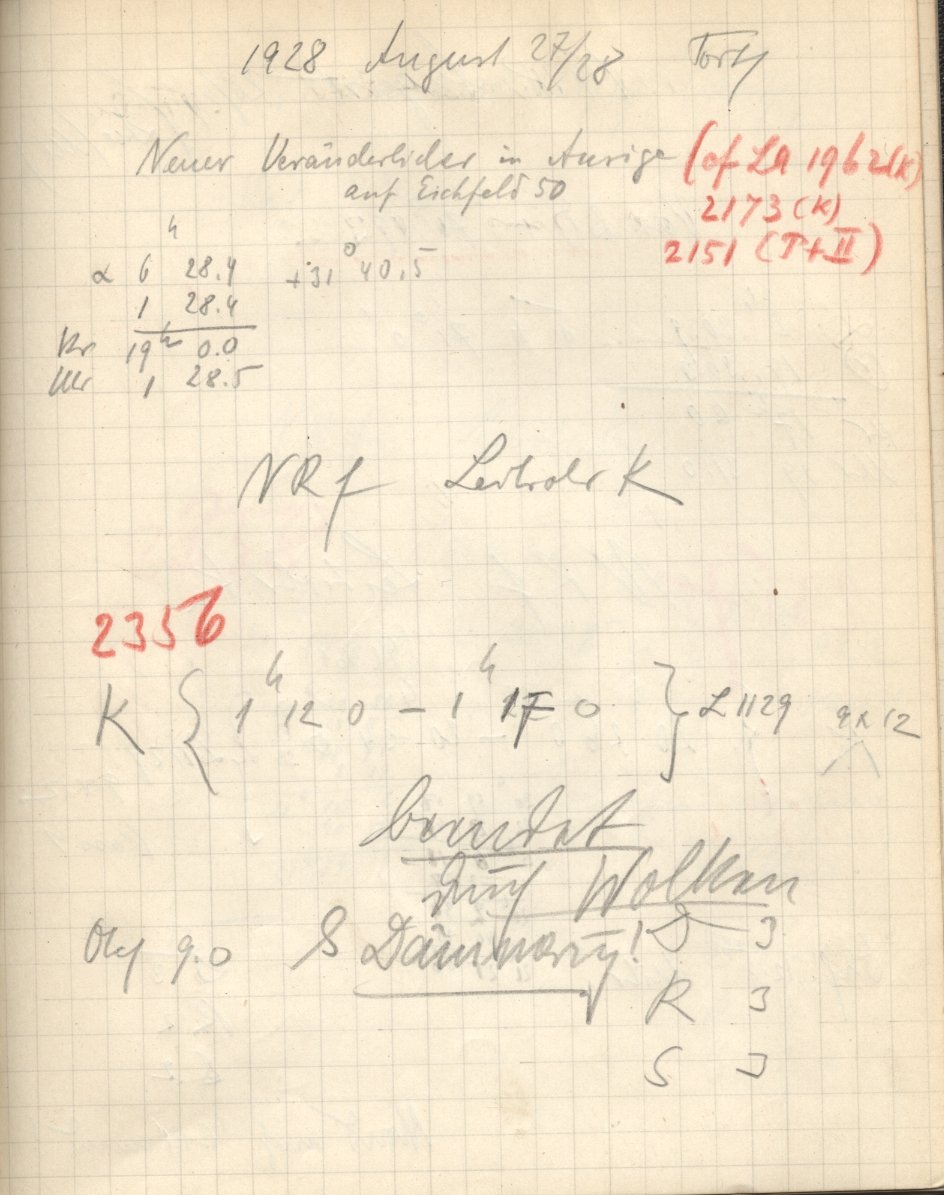 1928 August 27/28
Neuer Veränderlicher in Auriga (cf LA 1962 (K)
auf Eichfeld 50 2173 (K)
2151 (T+II)
h
α 6 28.4 +31° 40,5
1 28.4
19h 0.0
Uhr 1 28.5
NRf K
2356
K { 1h 12 0 – 1h 17 0 } L 1129 9 x 12
beendet
durch Wolken
9.0 & Dämmerung! D 3
R 3
S 3